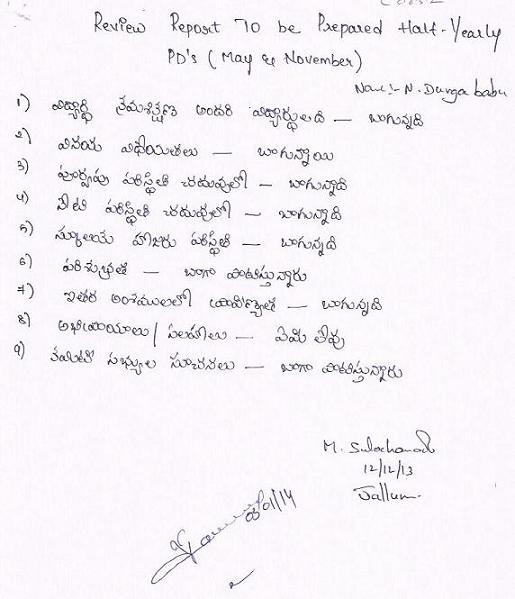 Review Report To be Prepared Half-Yearly
PD's (May & November)
Name :- N. Durga babu
1) విద్యార్థి క్రమశిక్షణ అందరి విద్యార్థులది — బాగున్నది
2) వినయ విధేయతలు — బాగున్నాయి
3) పూర్వపు పరిస్థితి చదువులో — బాగున్నది
4) నేటి పరిస్థితి చదువులో — బాగున్నది
5) స్కూలుయే హాజరు పరిస్థితి — బాగున్నది
6) పరిశుభ్రత — బాగా పాటిస్తున్నారు
7) ఇతర అంశములలో ప్రావిణ్యత — బాగున్నది
8) అభిప్రాయాలు / సలహాలు — ఏమి లేవు
9) కమిటి సభ్యుల సూచనలు — బాగా పాటిస్తున్నారు
M.
12/12/13